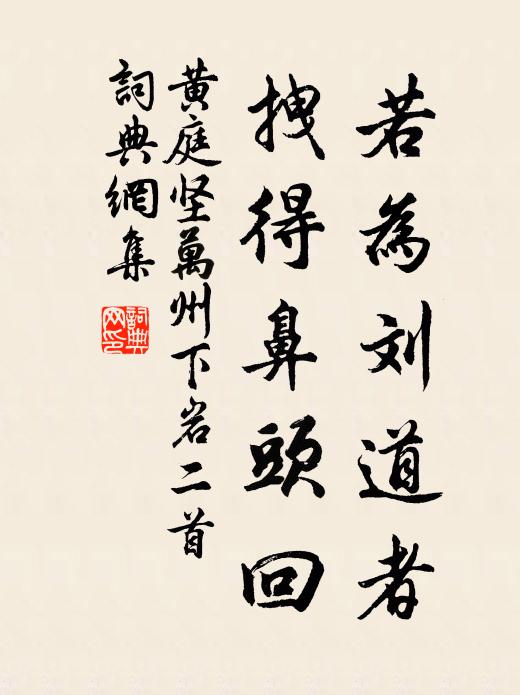 若為刘道者
拽得鼻頭回
黄庭坚萬州下岩二首
詞典網集
詞典
网印